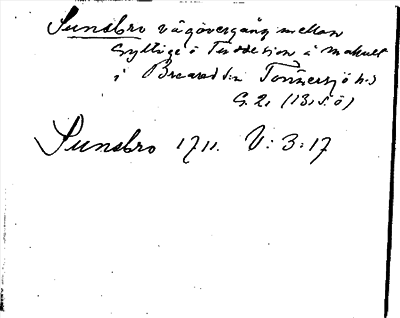 Sunsbro vägövergång mellan
Gyltige ö Tuddesjön å Mahult
i Breared sn Tönnersjö hd
G. 2, (13, 5. ö)
Sunsbro 1711. V: 3: 17